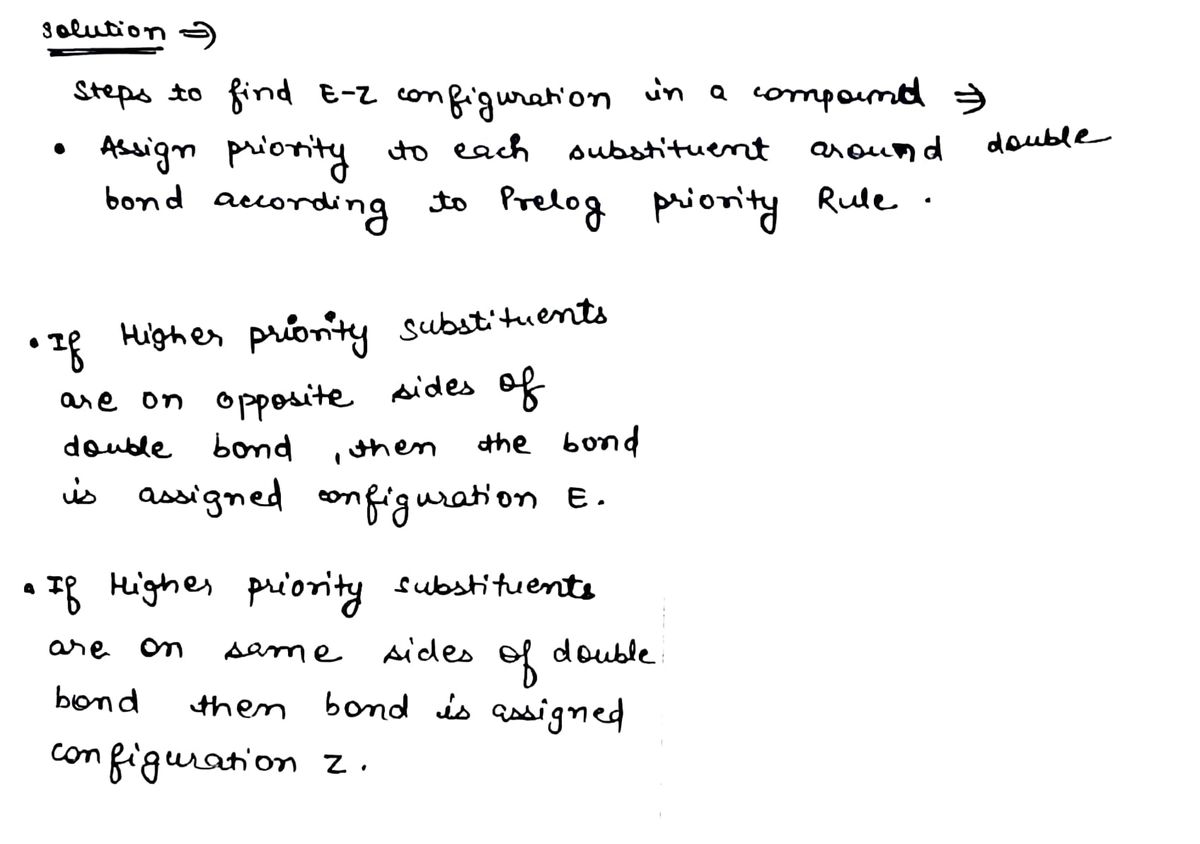 Solution ⇒
Steps to find E-Z configuration in a compound ⇒
• Assign priority to each substituent around double
bond according to Prelog priority Rule .
• If Higher priority substituents
are on opposite sides of
double bond , then the bond
is assigned configuration E .
• If Higher priority substituents
are on same sides of double
bond then bond is assigned
configuration Z .